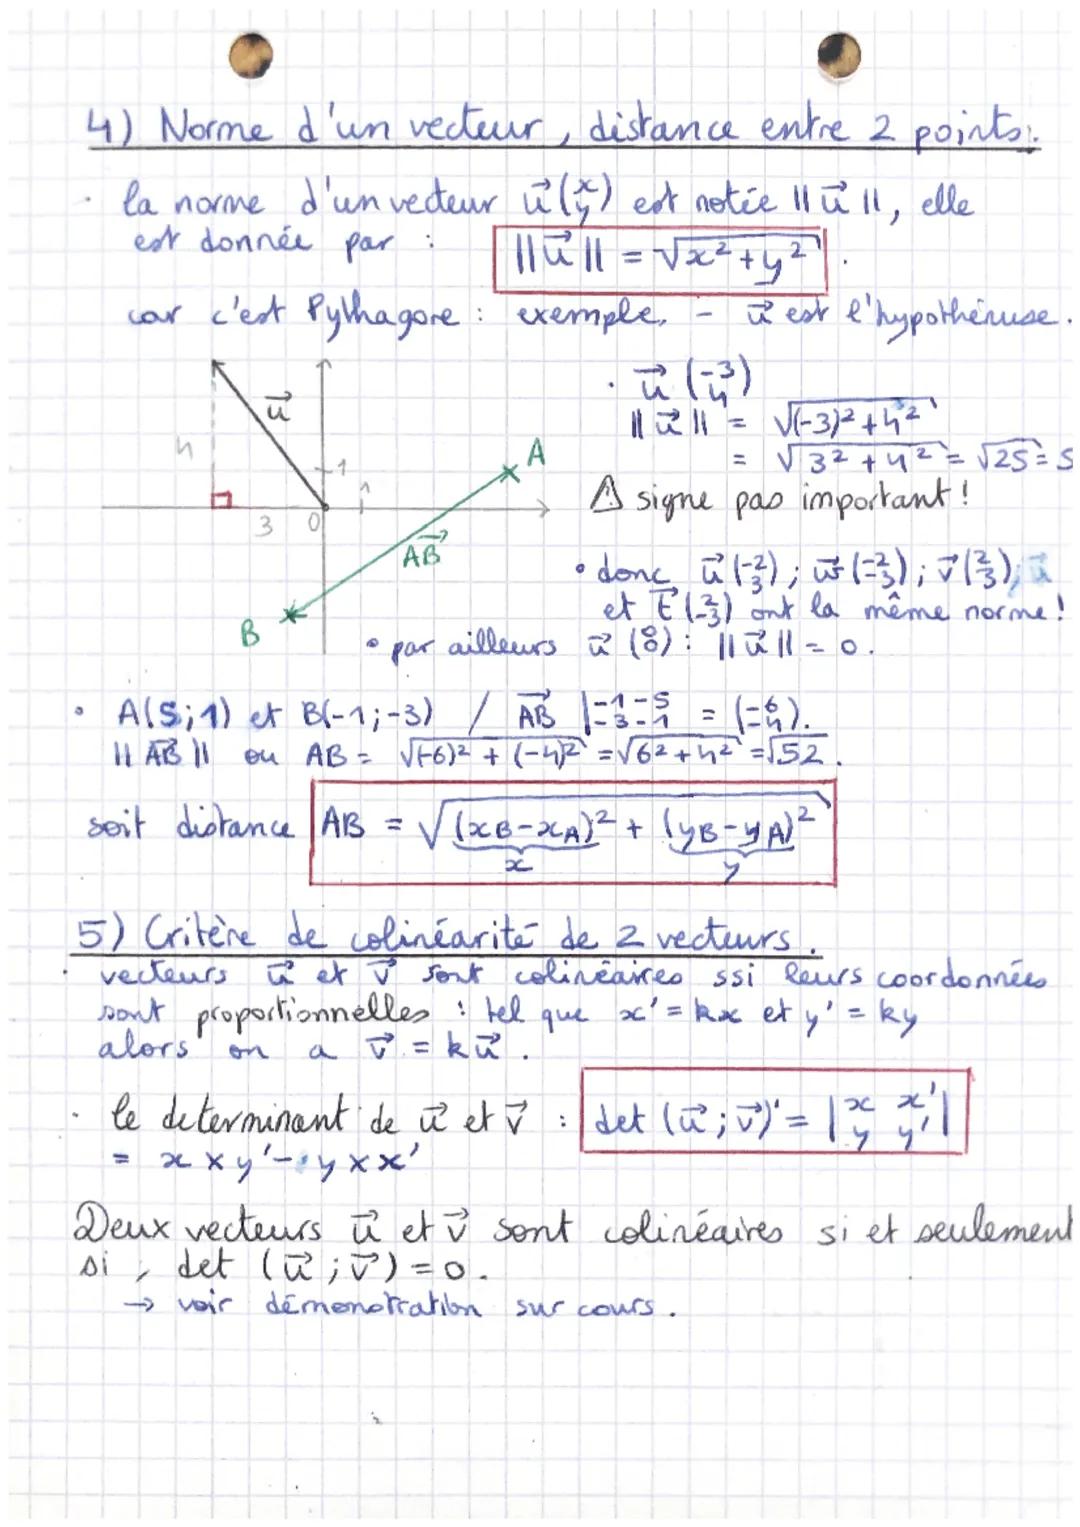 4) Norme d'un vecteur, distance entre 2 points:
· la norme d'un vecteur u⃗(x y) est notée ||u⃗||, elle
est donnée par : ||u⃗|| = √x²+y² .
car c'est Pythagore : exemple, - u⃗ est l'hypothénuse.
· u⃗ (-3 4)
||u⃗|| = √(-3)²+4²
= √3²+4² = √25 = 5
⚠ signe pas important !
u⃗
4
1
1
3
0
A
AB⃗
B
• donc u⃗ (-2 3) ; w⃗ (-2 -3) ; v⃗ (2 3) ;
et t⃗ (2 -3) ont la même norme !
• par ailleurs u⃗ (0 0) : ||u⃗|| = 0.
• A(5;1) et B(-1;-3) / AB⃗ |-1-5 -3-1 = (-6 -4).
||AB⃗|| ou AB = √(-6)² + (-4)² = √6²+4² = √52.
soit distance AB = √(xB-xA)² + (yB-yA)²
x y
5) Critère de colinéarité de 2 vecteurs.
· vecteurs u⃗ et v⃗ sont colinéaires ssi leurs coordonnées
sont proportionnelles : tel que x' = kx et y' = ky
alors on a v⃗ = ku⃗.
· le determinant de u⃗ et v⃗ : det (u⃗ ; v⃗) = |x x' y y'|
= x × y' - y × x'
Deux vecteurs u⃗ et v⃗ sont colinéaires si et seulement
si, det (u⃗ ; v⃗) = 0.
→ voir démonstration sur cours.